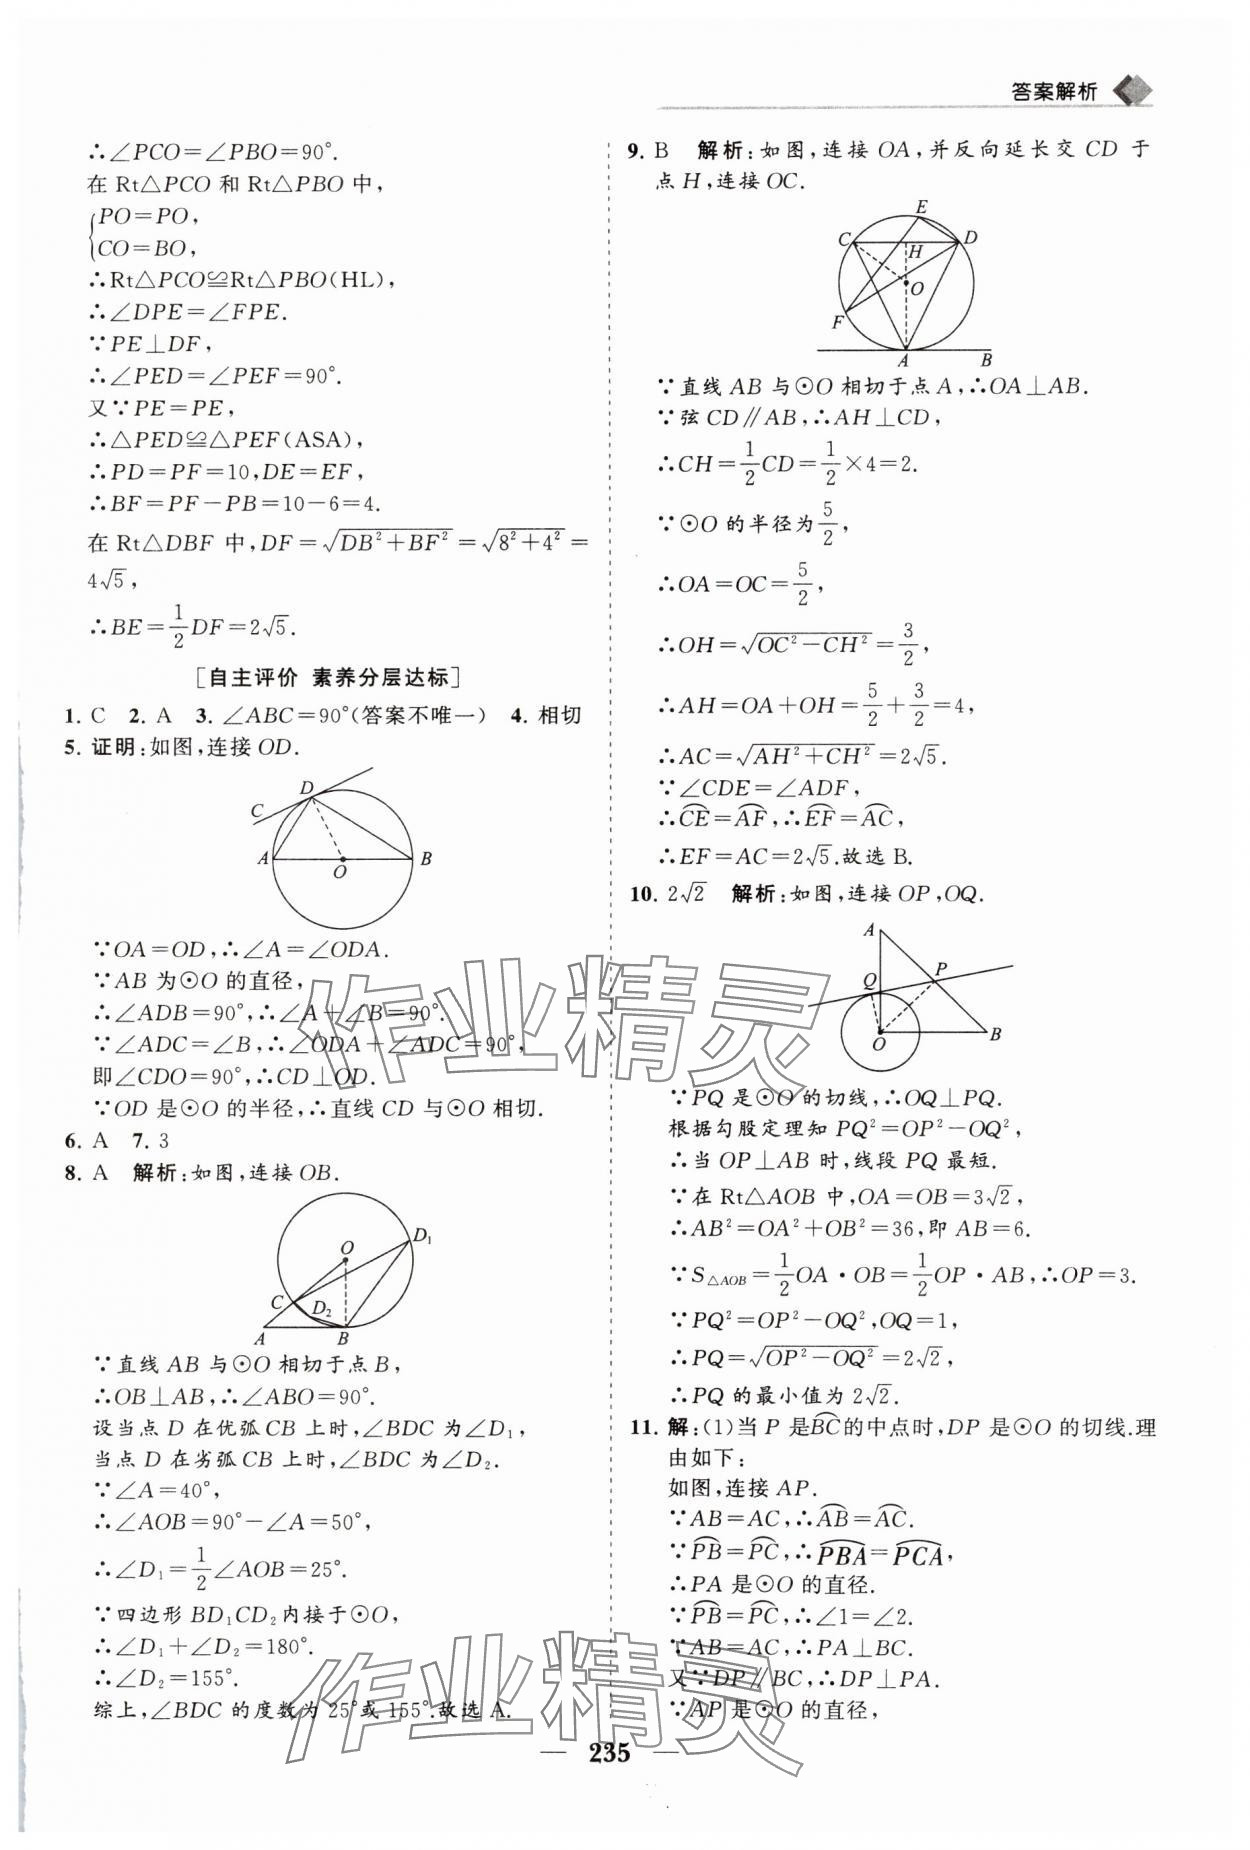 答案解析
∴∠PCO=∠PBO=90°.
在 Rt△PCO 和 Rt△PBO 中,
{PO=PO,
CO=BO,
∴Rt△PCO≌Rt△PBO(HL),
∴∠DPE=∠FPE.
∵PE⊥DF,
∴∠PED=∠PEF=90°.
又∵PE=PE,
∴△PED≌△PEF(ASA),
∴PD=PF=10,DE=EF,
∴BF=PF-PB=10-6=4.
在 Rt△DBF 中,DF=√(DB²+BF²)=√(8²+4²)=
4√5,
∴BE=1/2DF=2√5.
[自主评价 素养分层达标]
1. C 2. A 3. ∠ABC=90°(答案不唯一) 4. 相切
5. 证明:如图,连接 OD.
D
C
A
O
B
∵OA=OD,∴∠A=∠ODA.
∵AB 为⊙O 的直径,
∴∠ADB=90°,∴∠A+∠B=90°.
∵∠ADC=∠B,∴∠ODA+∠ADC=90°,
即∠CDO=90°,∴CD⊥OD.
∵OD 是⊙O 的半径,∴直线 CD 与⊙O 相切.
6. A 7. 3
8. A 解析:如图,连接 OB.
O
D₁
C
D₂
A
B
∵直线 AB 与⊙O 相切于点 B,
∴OB⊥AB,∴∠ABO=90°.
设当点 D 在优弧 CB 上时,∠BDC 为∠D₁,
当点 D 在劣弧 CB 上时,∠BDC 为∠D₂.
∵∠A=40°,
∴∠AOB=90°-∠A=50°,
∴∠D₁=1/2∠AOB=25°.
∵四边形 BD₁CD₂内接于⊙O,
∴∠D₁+∠D₂=180°.
∴∠D₂=155°.
综上,∠BDC 的度数为 25°或 155°.故选 A.
9. B 解析:如图,连接 OA,并反向延长交 CD 于
点 H,连接 OC.
E
C
H
D
O
F
A
B
∵直线 AB 与⊙O 相切于点 A,∴OA⊥AB.
∵弦 CD∥AB,∴AH⊥CD,
∴CH=1/2CD=1/2×4=2.
∵⊙O 的半径为5/2,
∴OA=OC=5/2,
∴OH=√(OC²-CH²)=3/2,
∴AH=OA+OH=5/2+3/2=4,
∴AC=√(AH²+CH²)=2√5.
∵∠CDE=∠ADF,
∴⌒CE=⌒AF,∴⌒EF=⌒AC,
∴EF=AC=2√5.故选 B.
10. 2√2 解析:如图,连接 OP,OQ.
A
Q
P
O
B
∵PQ 是⊙O 的切线,∴OQ⊥PQ.
根据勾股定理知 PQ²=OP²-OQ²,
∴当 OP⊥AB 时,线段 PQ 最短.
∵在 Rt△AOB 中,OA=OB=3√2,
∴AB²=OA²+OB²=36,即 AB=6.
∵S△AOB=1/2OA·OB=1/2OP·AB,∴OP=3.
∵PQ²=OP²-OQ²,OQ=1,
∴PQ=√(OP²-OQ²)=2√2,
∴PQ 的最小值为 2√2.
11. 解:(1)当 P 是⌒BC的中点时,DP 是⊙O 的切线.理
由如下:
如图,连接 AP.
∵AB=AC,∴⌒AB=⌒AC.
∵⌒PB=⌒PC,∴⌒PBA=⌒PCA,
∴PA 是⊙O 的直径.
∵⌒PB=⌒PC,∴∠1=∠2.
∵AB=AC,∴PA⊥BC.
又∵DP∥BC,∴DP⊥PA.
∵AP 是⊙O 的直径,
作业精灵
作业精灵
235